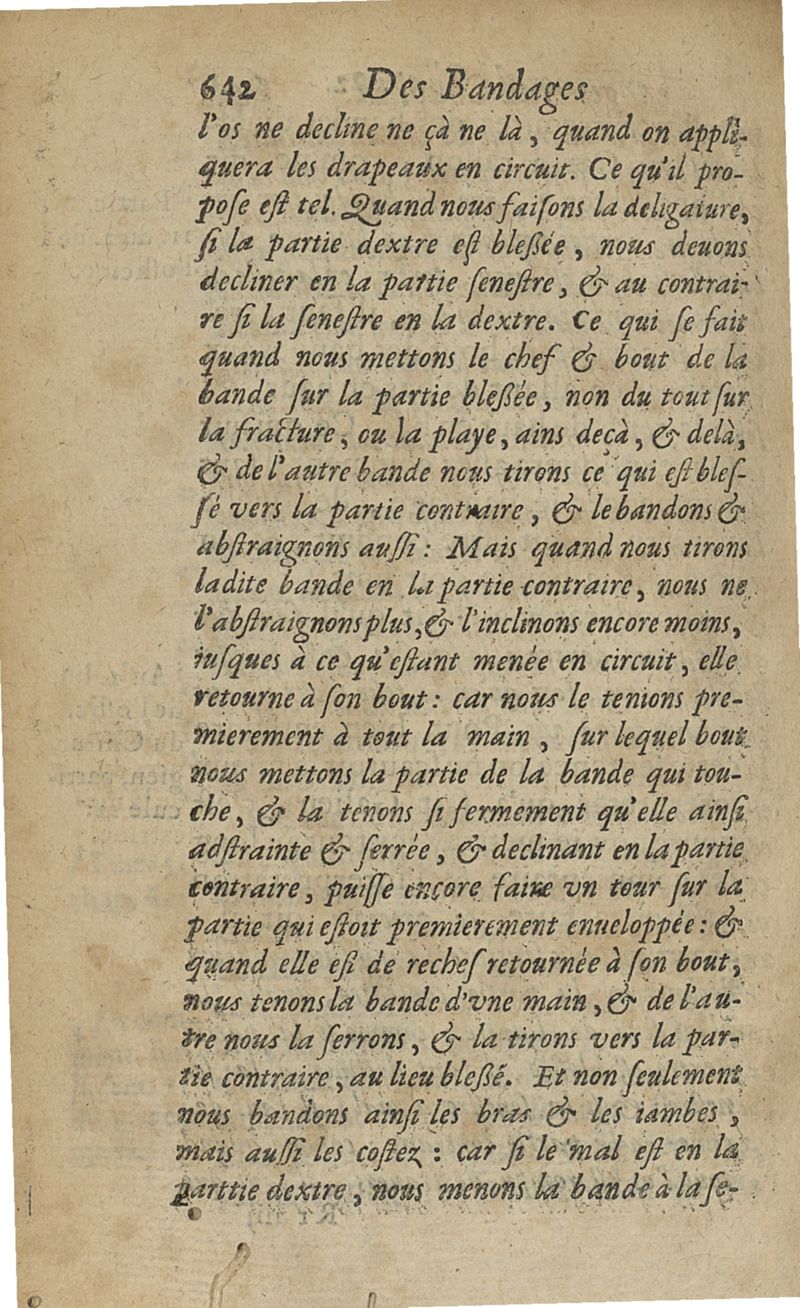 642 Des Bandages
l'os ne decline ne çà ne là, quand on appli-
quera les drapeaux en circuit. Ce qu'il pro-
poſe eſt tel. Quand nous faiſons la deligature,
ſi la partie dextre eſt bleßée, nous deuons
decliner en la partie ſeneſtre, & au contrai-
re ſi la ſeneſtre en la dextre. Ce qui ſe fait
quand nous mettons le chef & bout de la
bande ſur la partie bleßée, non du tout ſur
la fracture, ou la playe, ains deçà, & delà,
& de l'autre bande nous tirons ce qui eſt bleſ-
ſé vers la partie contraire, & le bandons &
abſtraignons auſſi: Mais quand nous tirons
ladite bande en la partie contraire, nous ne
l'abſtraignons plus, & l'inclinons encore moins,
iuſques à ce qu'eſtant menée en circuit, elle
retourne à ſon bout: car nous le tenions pre-
mierement à tout la main, ſur lequel bout
nous mettons la partie de la bande qui tou-
che, & la tenons ſi fermement qu'elle ainſi
adſtrainte & ſerrée, & declinant en la partie
contraire, puiſſe encore faire vn tour ſur la
partie qui eſtoit premierement enueloppée: &
quand elle eſt de recheſ retournée à ſon bout,
nous tenons la bande d'vne main, & de l'au-
tre nous la ſerrons, & la tirons vers la par-
tie contraire, au lieu bleßé. Et non ſeulement
nous bandons ainſi les bras & les iambes,
mais auſſi les coſtez: car ſi le mal eſt en la
parttie dextre, nous menons la bande à la ſe-